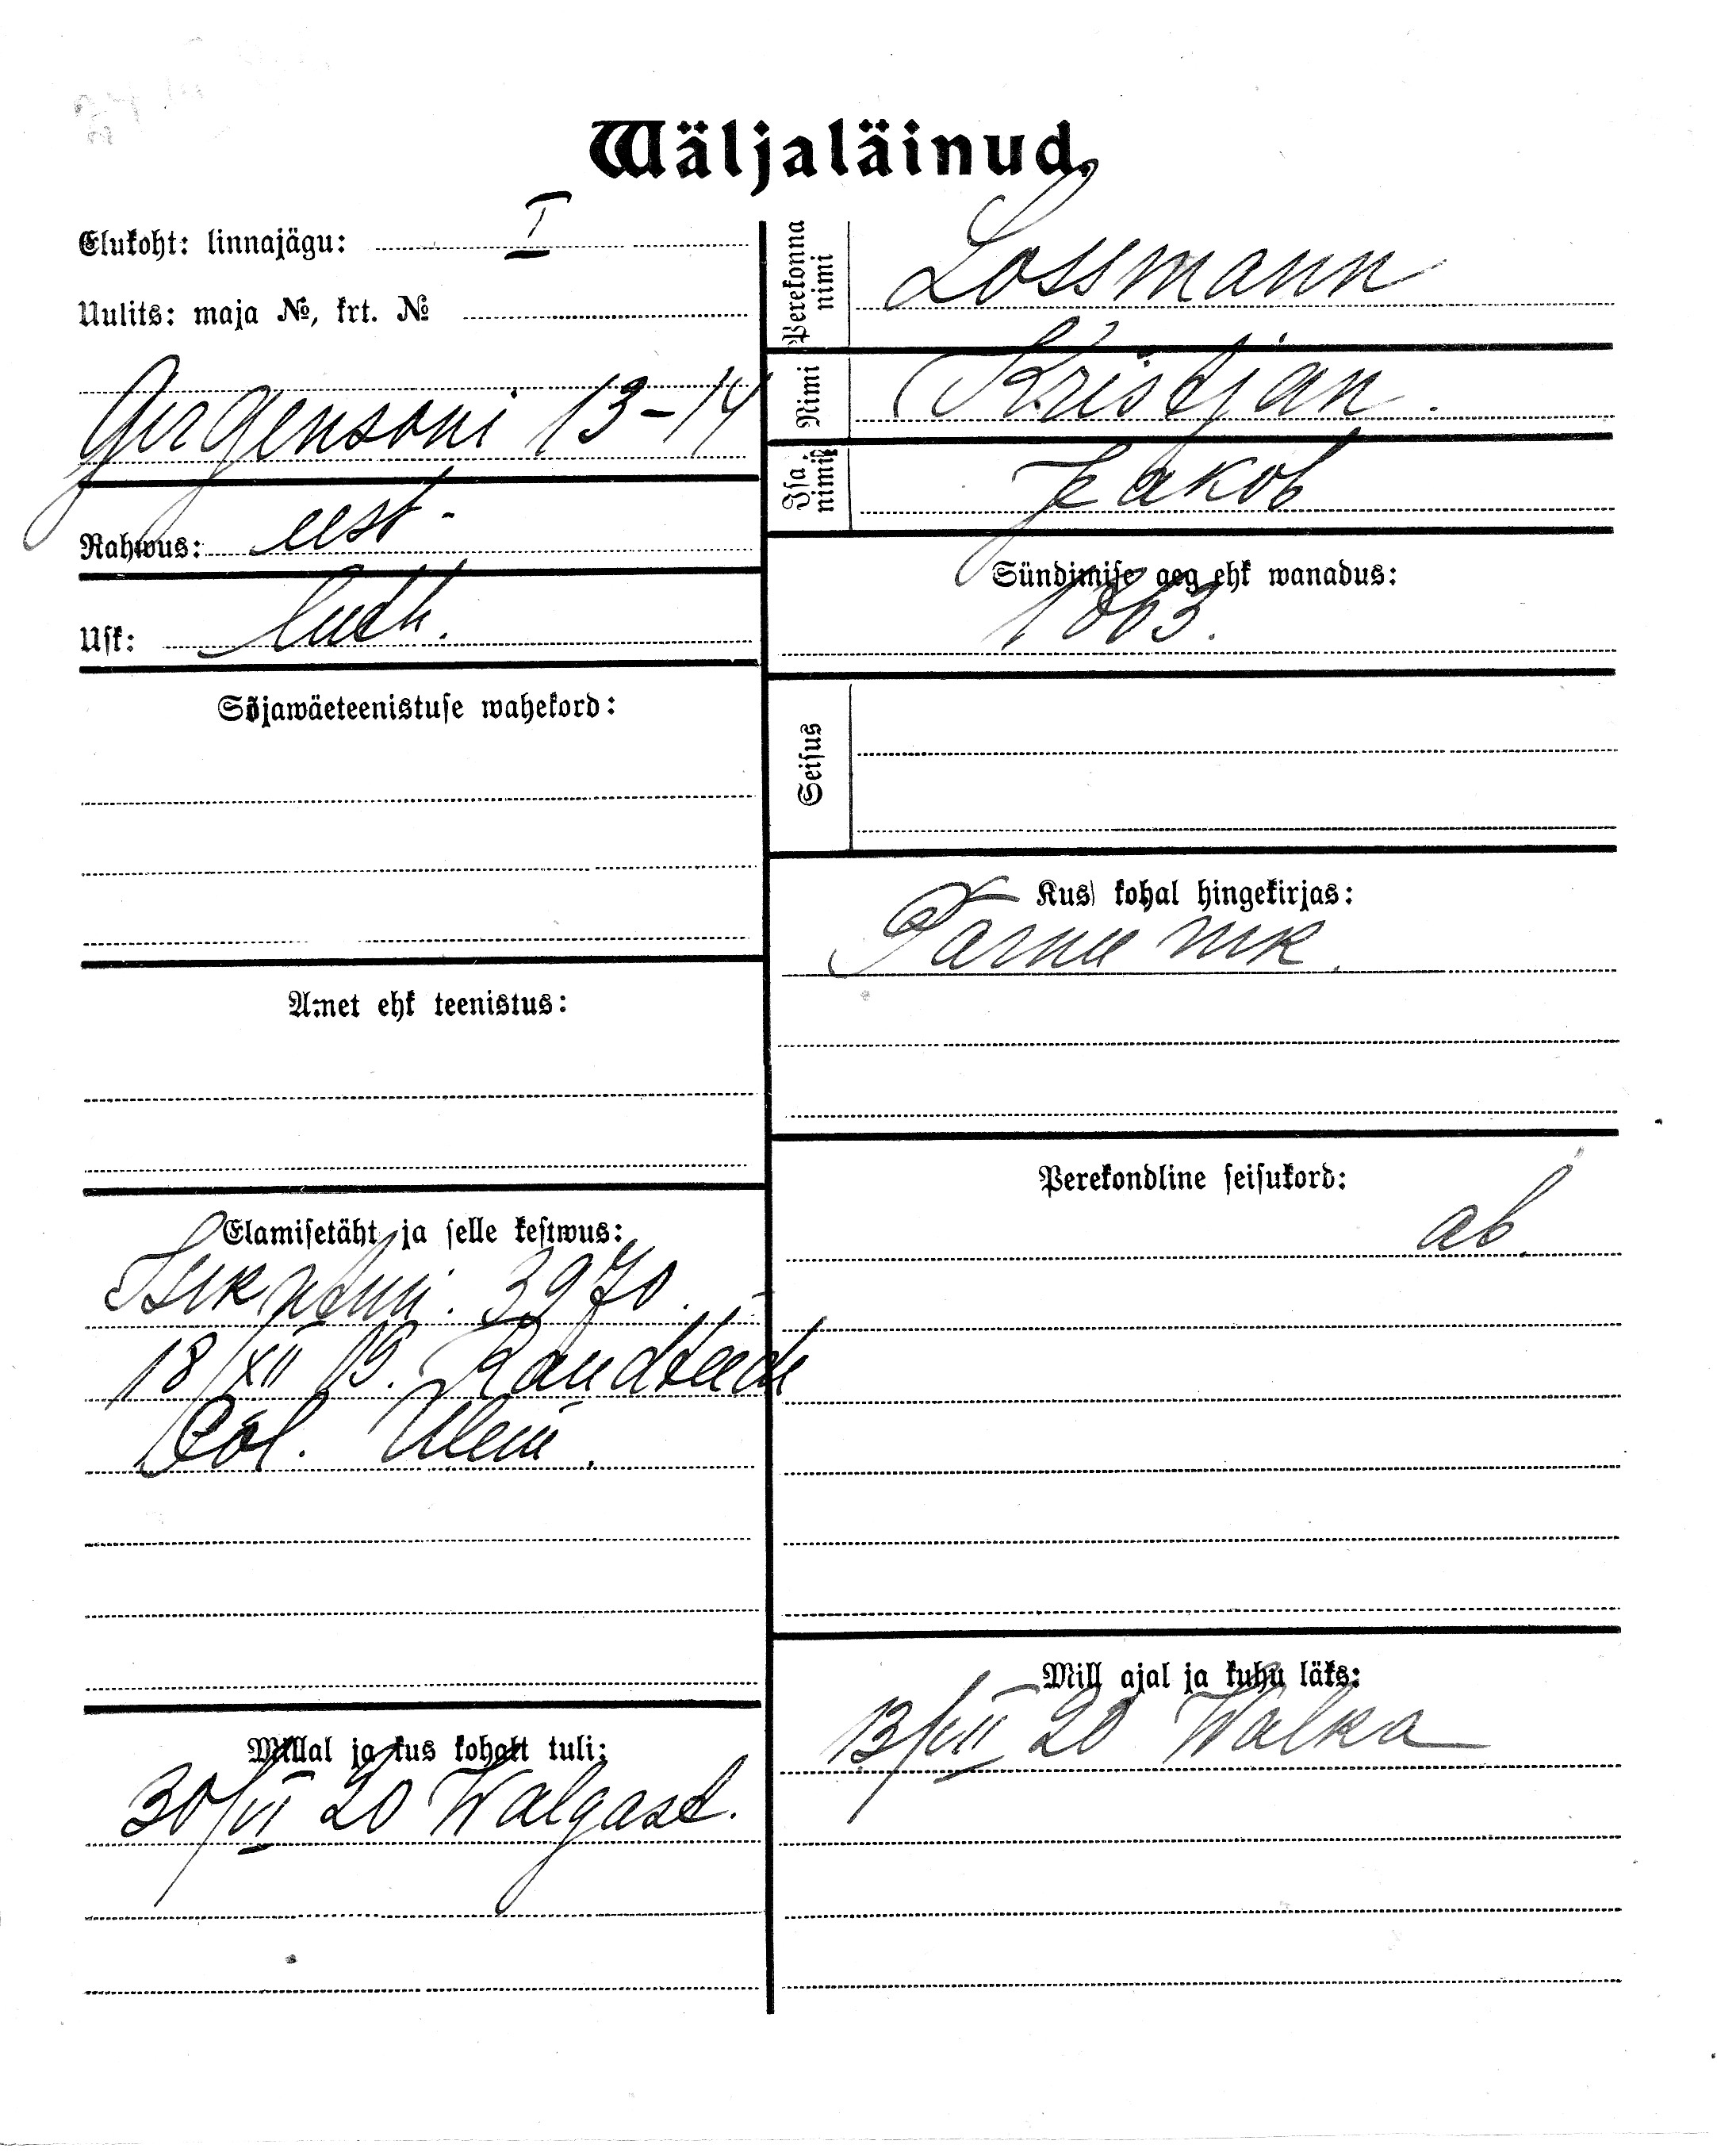 Wäljaläinud.
Elukoht: linnajägu: I
Uulits: maja №, krt. №
Gürgensoni 13-14
Rahwus: eest.
Usk: luth.
Sõjawäeteenistuse wahekord:
Amet ehk teenistus:
Elamisetäht ja selle kestwus:
Isik 3970.
18/XII 19. Raudteede
Pol. Ülem.
Millal ja kus kohalt tuli:
30/VI 20 Walgast.
Perekonna nimi Lossmann
Nimi Kristjan.
Isa nimi Jakob
Sündimise aeg ehk wanadus:
1863.
Seisus
Kus kohal hingekirjas:
Pärnu mk.
Perekondline seisukord:
ab.
Mill ajal ja kuhu läks:
13/VII 20 Walka